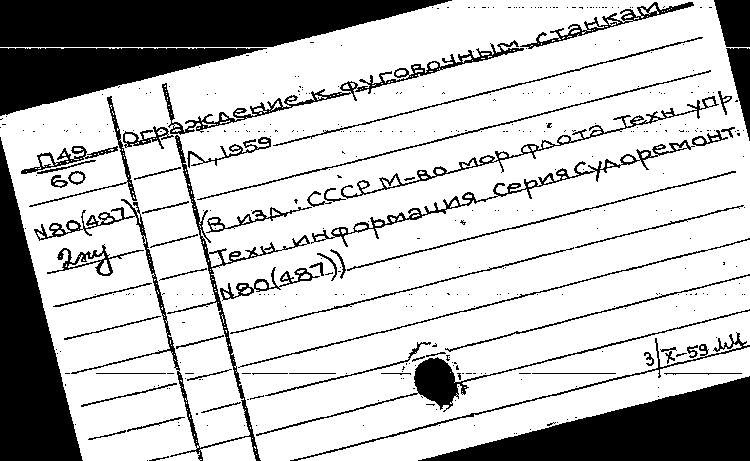 Ограждение к фуговочным станкам
П49
60
Л., 1959
N80(487)
2
(В изд.: СССР М-во мор. флота Техн упр.
Техн. информация. Серия Судоремонт.
N80(487))
3 X-59